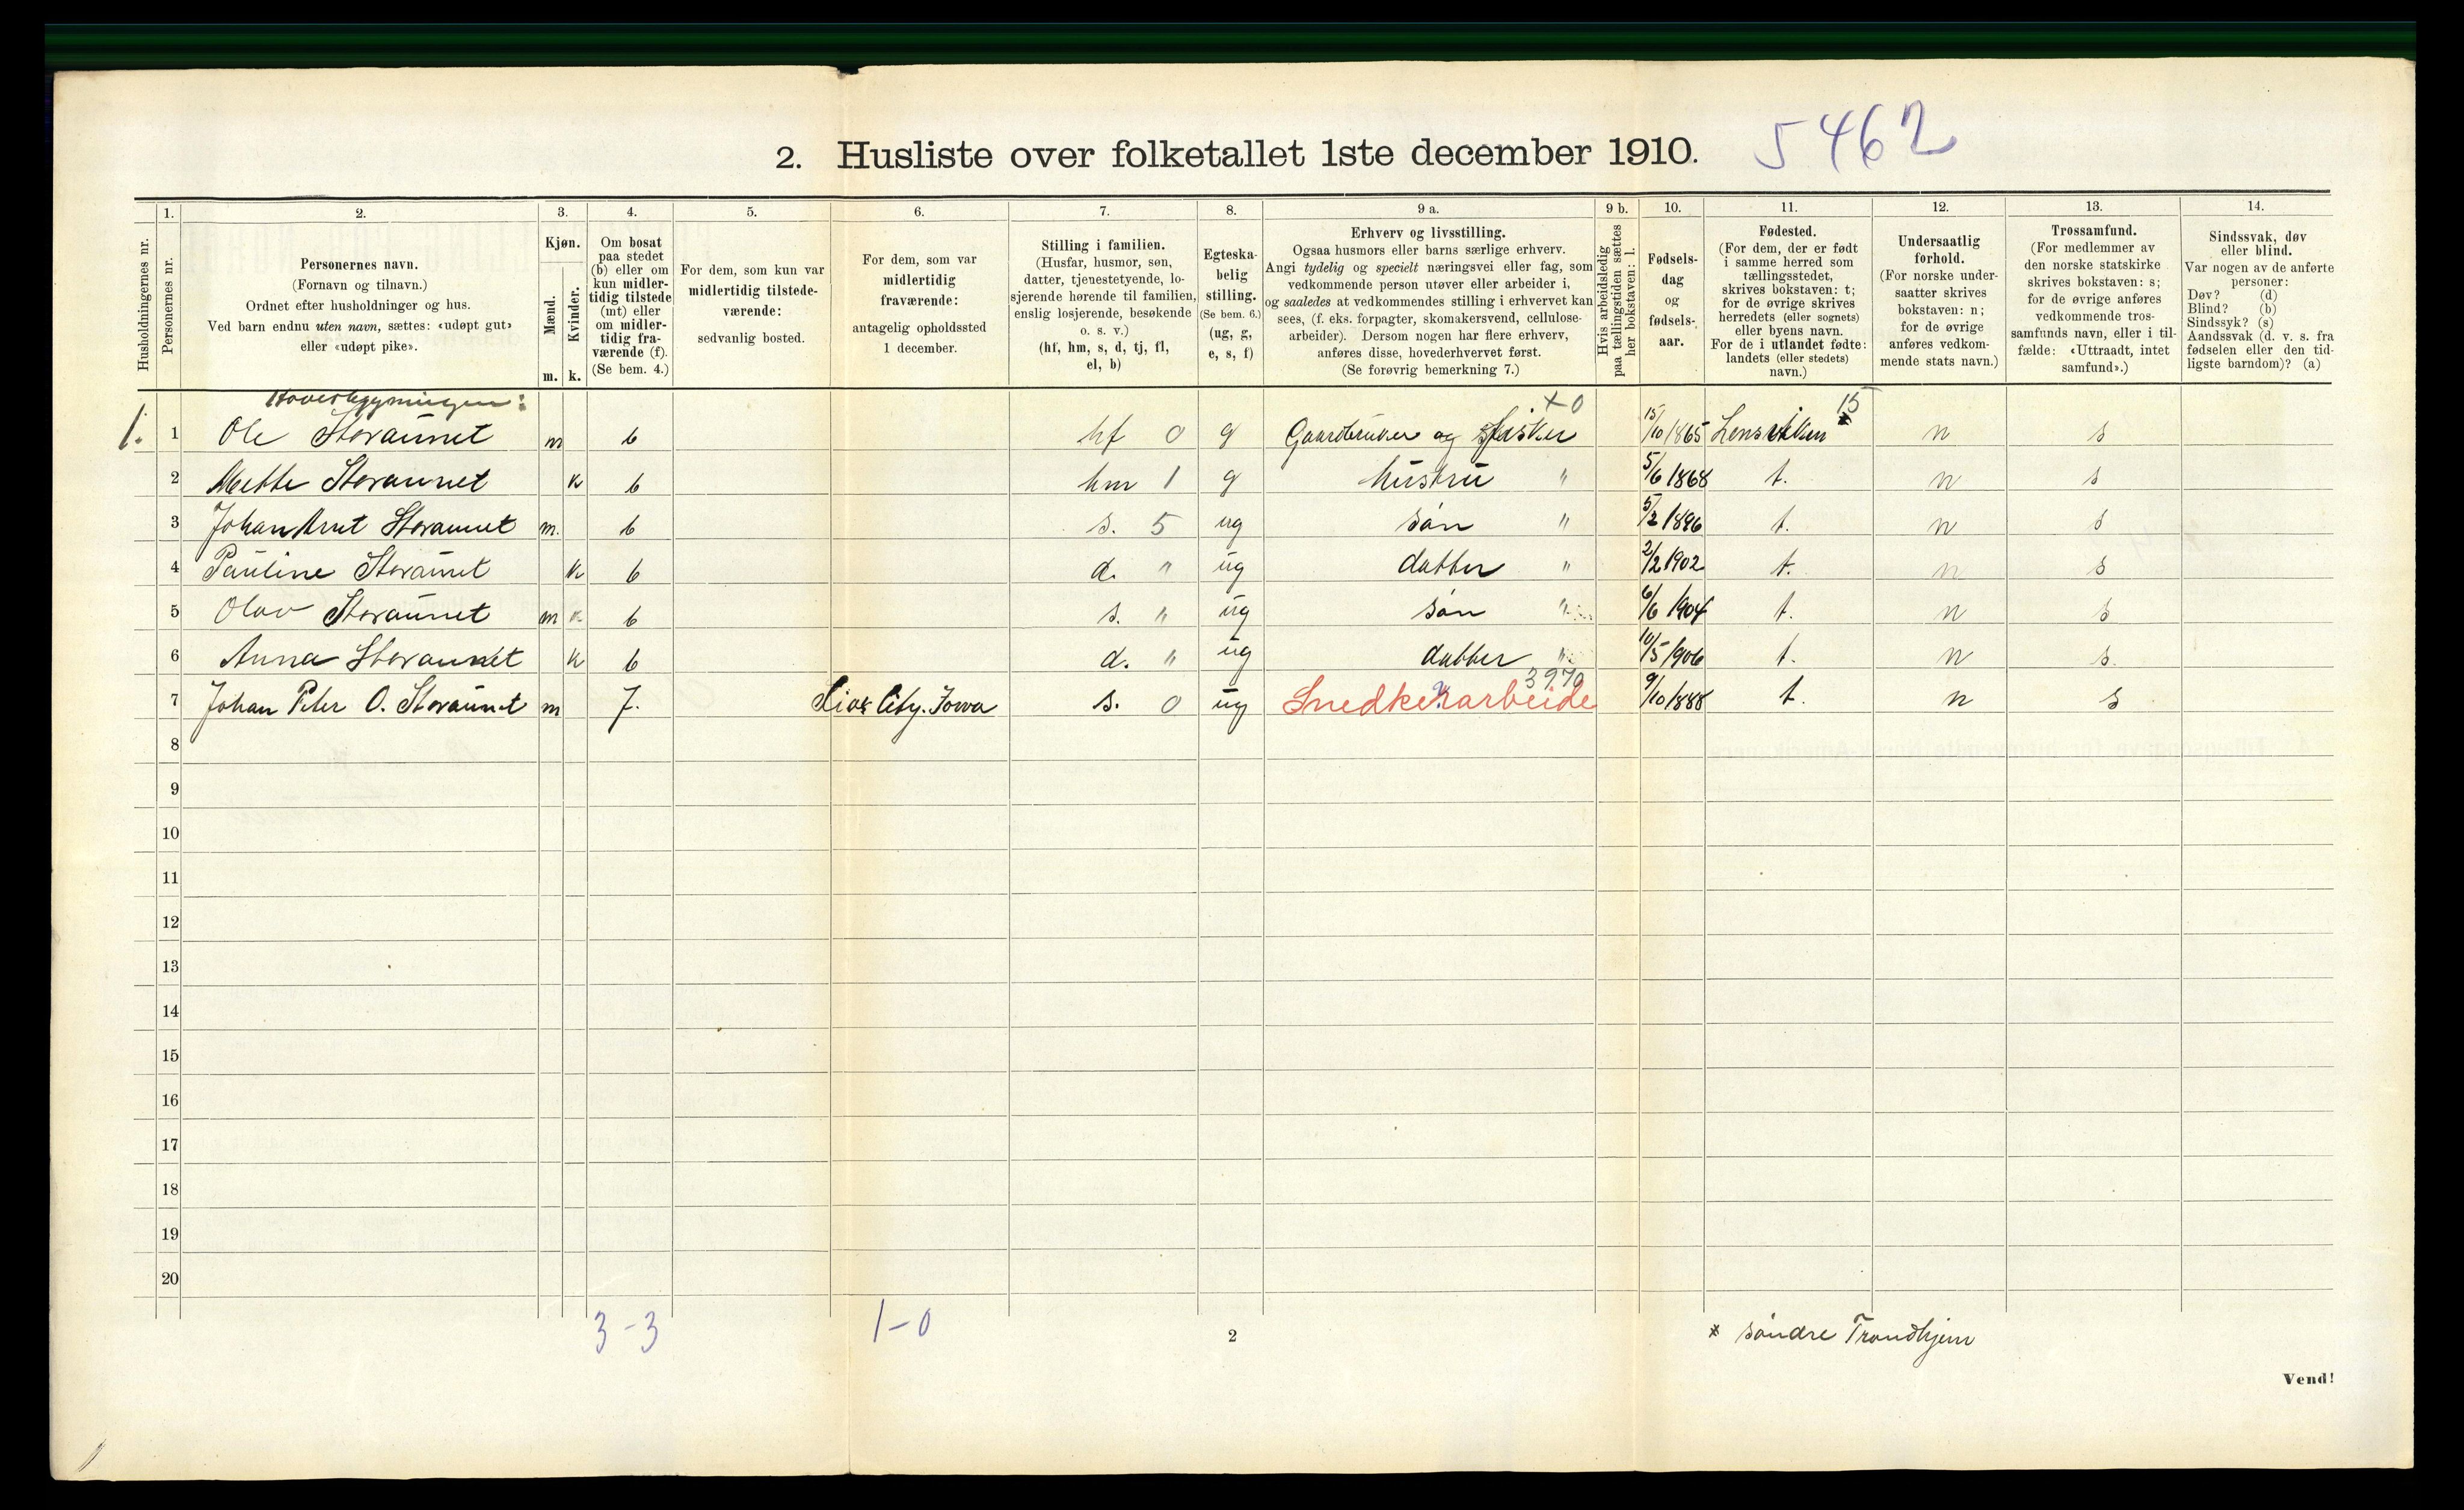 2. Husliste over folketallet 1ste december 1910. 5462
Husholdningernes nr.
1. Personernes nr.
2. Personernes navn.
(Fornavn og tilnavn.)
Ordnet efter husholdninger og hus.
Ved barn endnu uten navn, sættes: «udøpt gut»
eller «udøpt pike».
3. Kjøn.
Mænd. Kvinder.
m. k.
4. Om bosat
paa stedet
(b) eller om
kun midler-
tidig tilstede
(mt) eller
om midler-
tidig fra-
værende (f).
(Se bem. 4.)
5. For dem, som kun var
midlertidig tilstede-
værende:
sedvanlig bosted.
6. For dem, som var
midlertidig
fraværende:
antagelig opholdssted
1 december.
7. Stilling i familien.
(Husfar, husmor, søn,
datter, tjenestetyende, lo-
sjerende hørende til familien,
enslig losjerende, besøkende
o. s. v.)
(hf, hm, s, d, tj, fl,
el, b)
8. Egteska-
belig
stilling.
(Se bem. 6.)
(ug, g,
e, s, f)
9 a. Erhverv og livsstilling.
Ogsaa husmors eller barns særlige erhverv.
Angi tydelig og specielt næringsvei eller fag, som
vedkommende person utøver eller arbeider i,
og saaledes at vedkommendes stilling i erhvervet kan
sees, (f. eks. forpagter, skomakersvend, cellulose-
arbeider). Dersom nogen har flere erhverv,
anføres disse, hovederhvervet først.
(Se forøvrig bemerkning 7.)
9 b. Hvis arbeidsledig
paa tællingstiden sættes
her bokstaven: l.
10. Fødsels-
dag
og
fødsels-
aar.
11. Fødested.
(For dem, der er født
i samme herred som
tællingsstedet,
skrives bokstaven: t;
for de øvrige skrives
herredets (eller sognets)
eller byens navn.
For de i utlandet fødte:
landets (eller stedets)
navn.)
12. Undersaatlig
forhold.
(For norske under-
saatter skrives
bokstaven: n;
for de øvrige
anføres vedkom-
mende stats navn.)
13. Trossamfund.
(For medlemmer av
den norske statskirke
skrives bokstaven: s;
for de øvrige anføres
vedkommende tros-
samfunds navn, eller i til-
fælde: «Uttraadt, intet
samfund».)
14. Sindssvak, døv
eller blind.
Var nogen av de anførte
personer:
Døv? (d)
Blind? (b)
Sindssyk? (s)
Aandssvak (d. v. s. fra
fødselen eller den tid-
ligste barndom)? (a)
Hovedbygningen: x0 15
1. 1 Ole Storaunet m b hf 0 g Gaardbruker og fisker 15/10 1865 Lensviken * n s
2 Mette Storaunet k b hm 1 g hustru " 5/6 1868 t. n s
3 Johan Arnt Storaunet m. b s. 5 ug søn " 5/2 1896 t. n s
4 Pauline Storaunet k b d. " ug datter " 2/2 1902 t. n s
5 Olav Storaunet m k b s. " ug søn " 6/6 1904 t. n s
6 Anna Storaunet k b d. " ug datter " 10/5 1906 t. n s.
3970
7 Johan Peter O. Storaunet m f. Siox City. Iowa s. 0 ug Snedkerarbeide 9/10 1888 t. n s
8
9
10
11
12
13
14
15
16
17
18
19
20
3-3 1-0 2 * søndre Trondhjem
Vend!